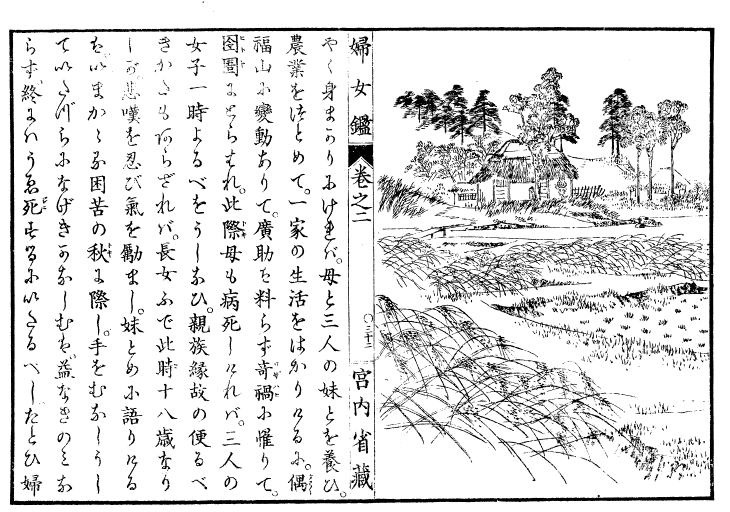 婦女鑑 卷之二 ○三十二 宮内省藏
やく身まかりにけれバ。母と三人の妹とを養ひ。
農業をつとめて。一家の生活をはかりけるに。偶
福山に變動ありて。廣助も料らず奇禍に罹りて。
囹圄にとらはれ。此際母も病死しけれバ。三人の
女子一時よるべをうしなひ。親族縁故の便るべ
きかたもあらざれバ。長女ふで此時十八歳なり
しが悲嘆を忍び氣を勵まし。妹とめに語りける
は。いまかゝる困苦の秋に際し。手をむなしうし
ていたづらになげきかなしむも。益なきのミな
らず。終にハうゑ死するにいたるべし。たとひ婦